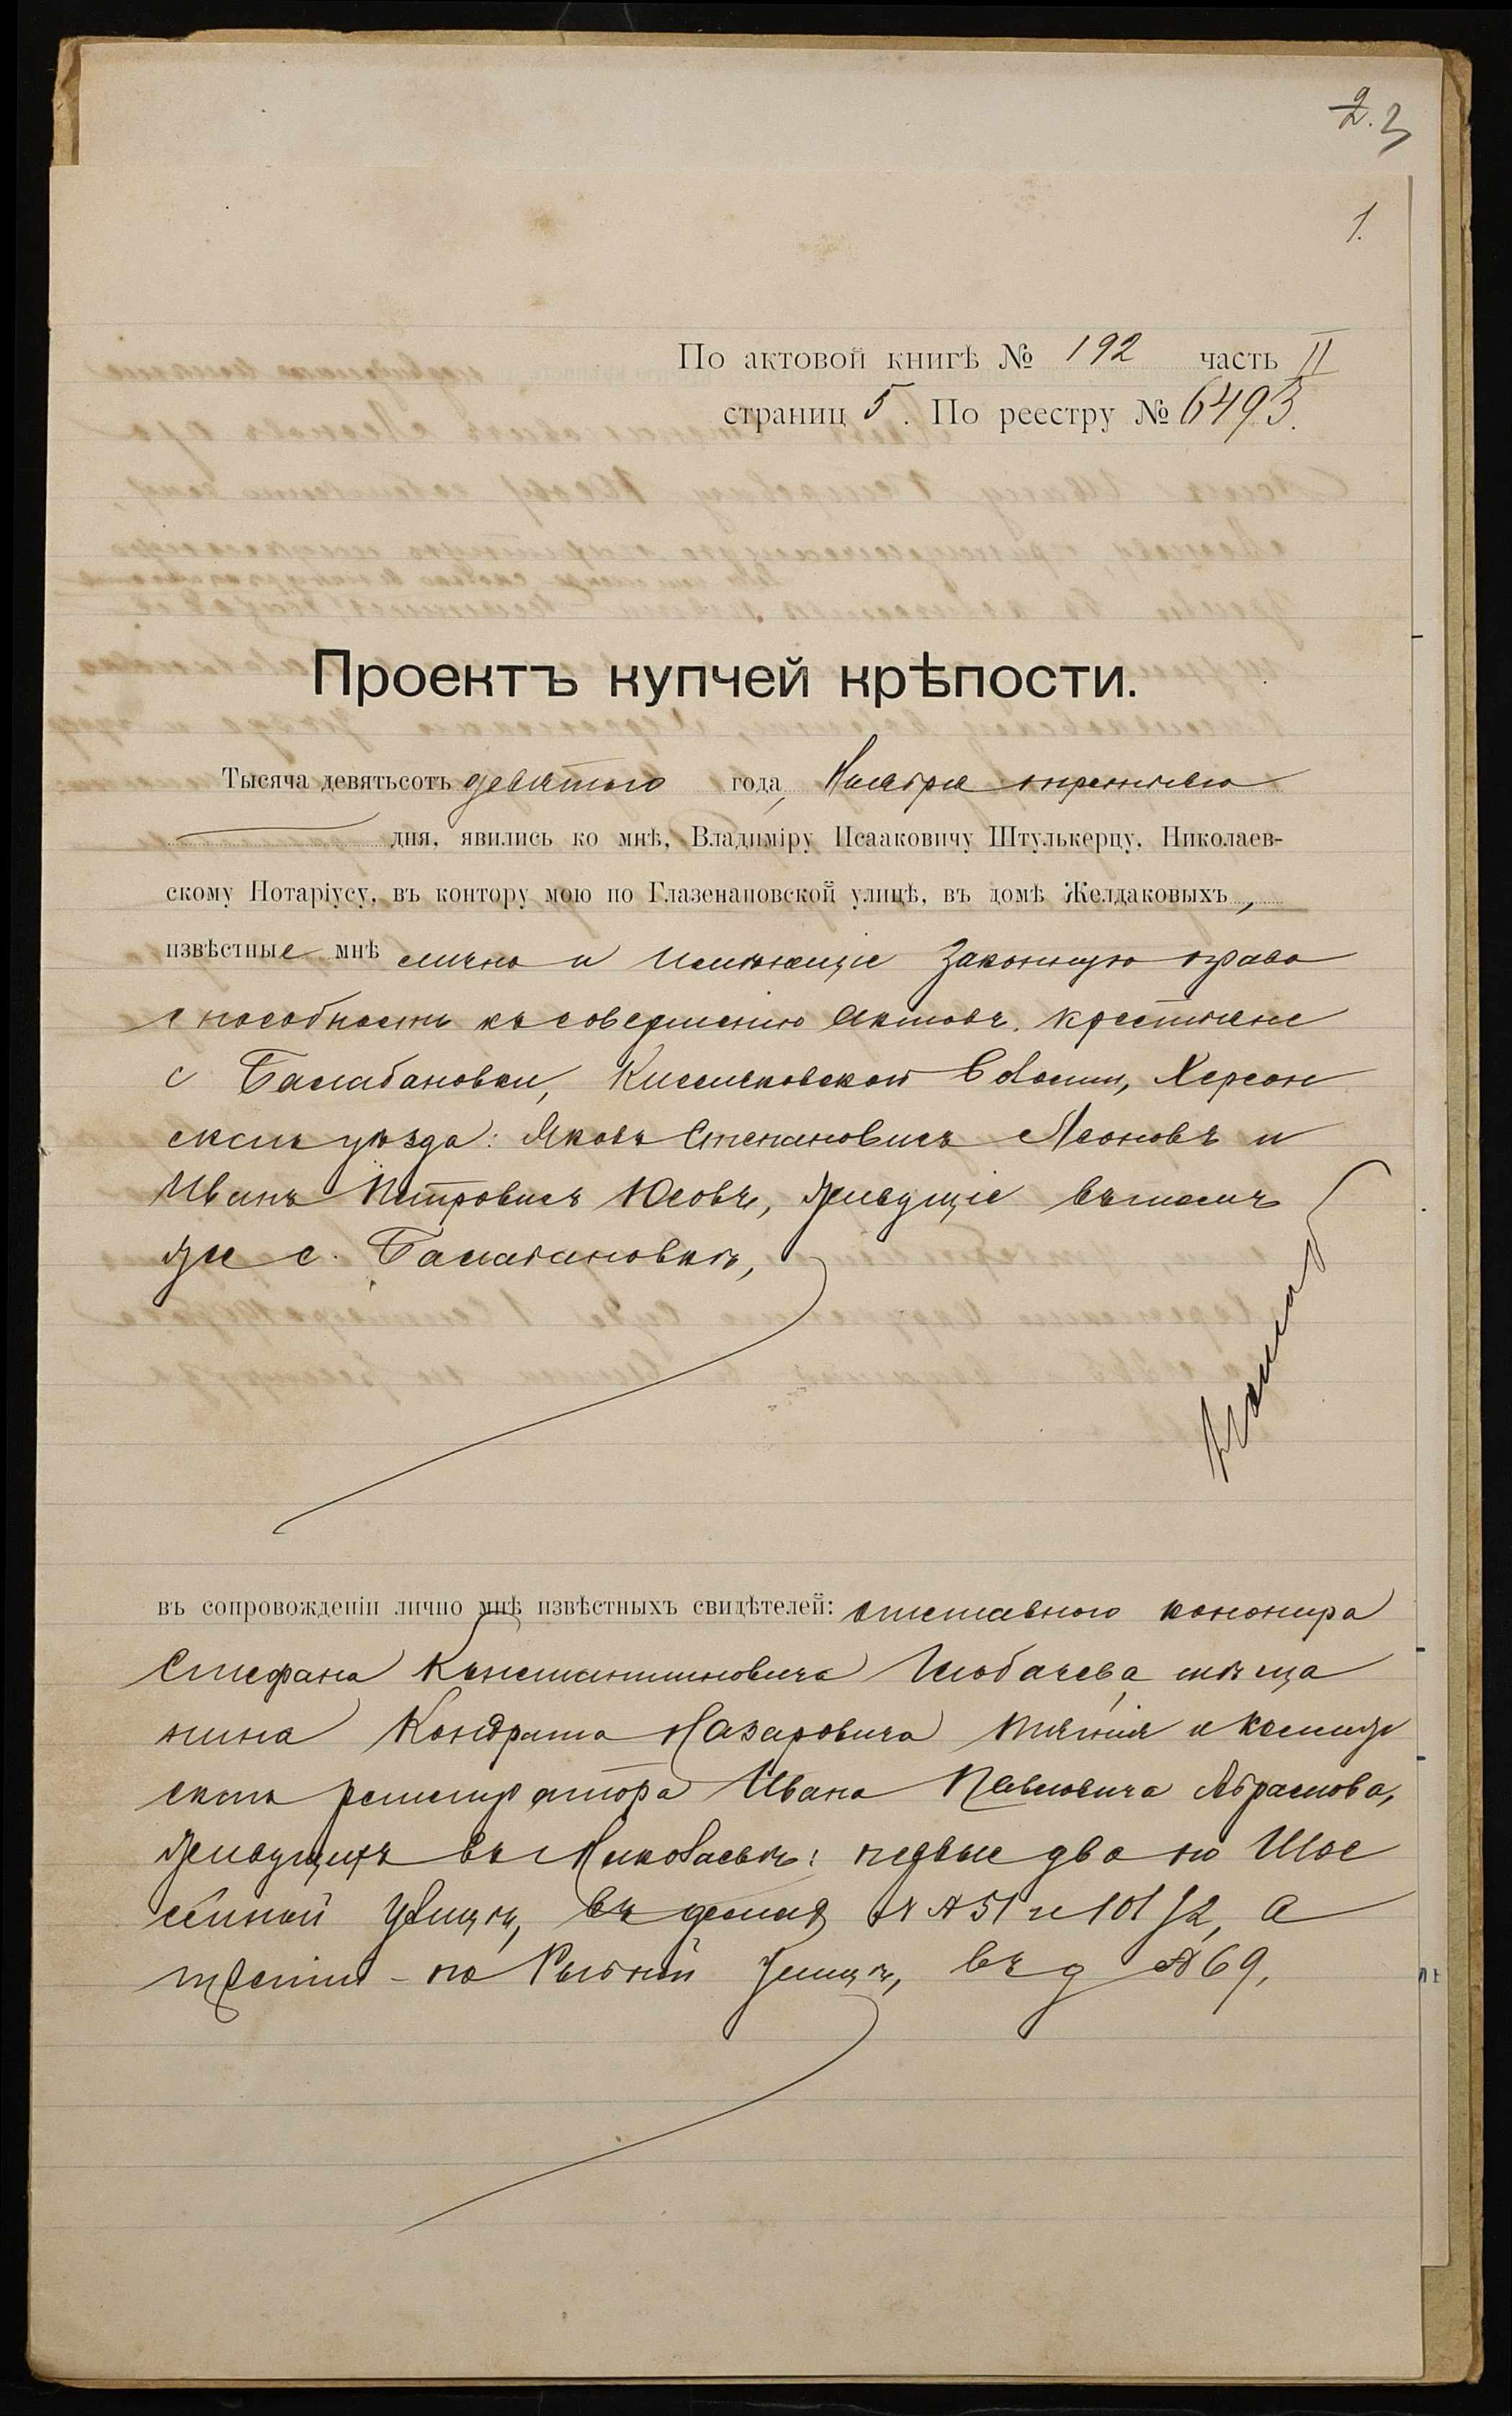 2. 3
1.
По актовой книгѣ № 192 часть II
страниц 5. По реестру № 6493.
Проектъ купчей крѣпости.
Тысяча девятьсотъ девятого года, Ноября третьяго
дня, явились ко мнѣ, Владиміру Исааковичу Штулькерцу, Николаев-
скому Нотаріусу, въ контору мою по Глазенаповской улицѣ, въ домѣ Желдаковыхъ,
извѣстные мнѣ лично и имѣющіе законную право
способность къ совершенію актовъ, крестьяне
с Балабановки, Кисляковской волости, Херсон
скаго уѣзда: Яковъ Степановичъ Леоновъ и
Иванъ Петровичъ Юсовъ, живущіе въ томъ
же с. Балабановкѣ,
въ сопровожденіи лично мнѣ извѣстныхъ свидѣтелей: отставного канонира
Стефана Константиновича мѣща
нина Кондрата Назаровича и коллеж
скаго регистратора Ивана Павловича Абрамова,
живущихъ въ Николаевѣ: первые два по Шос
сейной улицѣ, въ домахъ №№ 51 и 101/2, а
третій - по Рыбной улицѣ, въ д № 69,